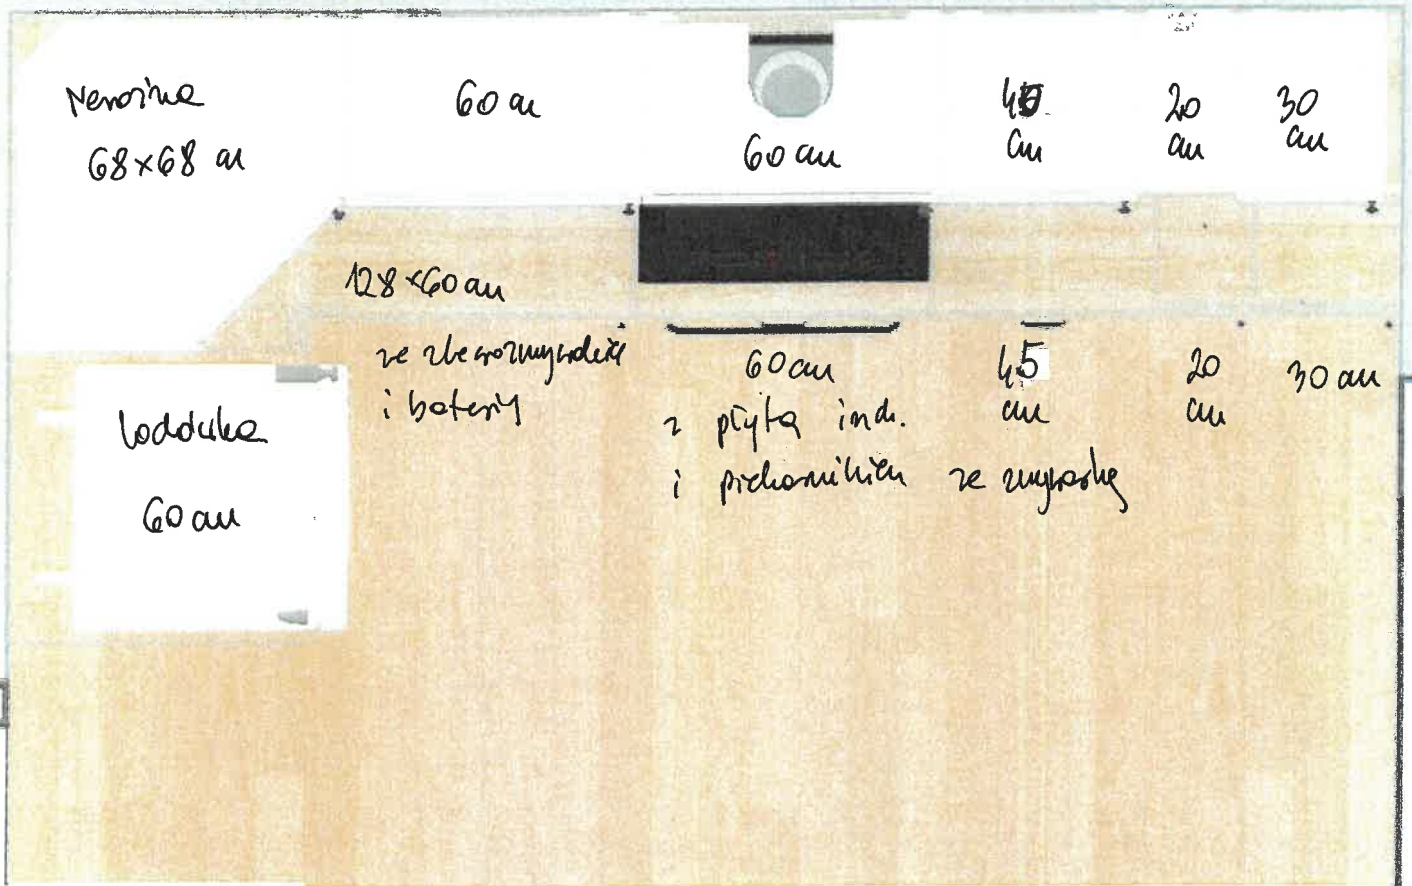 Narożna
68×68 cm
60 cm
60 cm
45
cm
20
cm
30
cm
128×60 cm
ze zlewozmywakiem
i baterią
60 cm
z płytą ind.
i piekarnikiem
45
cm
ze zmywarką
20
cm
30 cm
Lodówka
60 cm